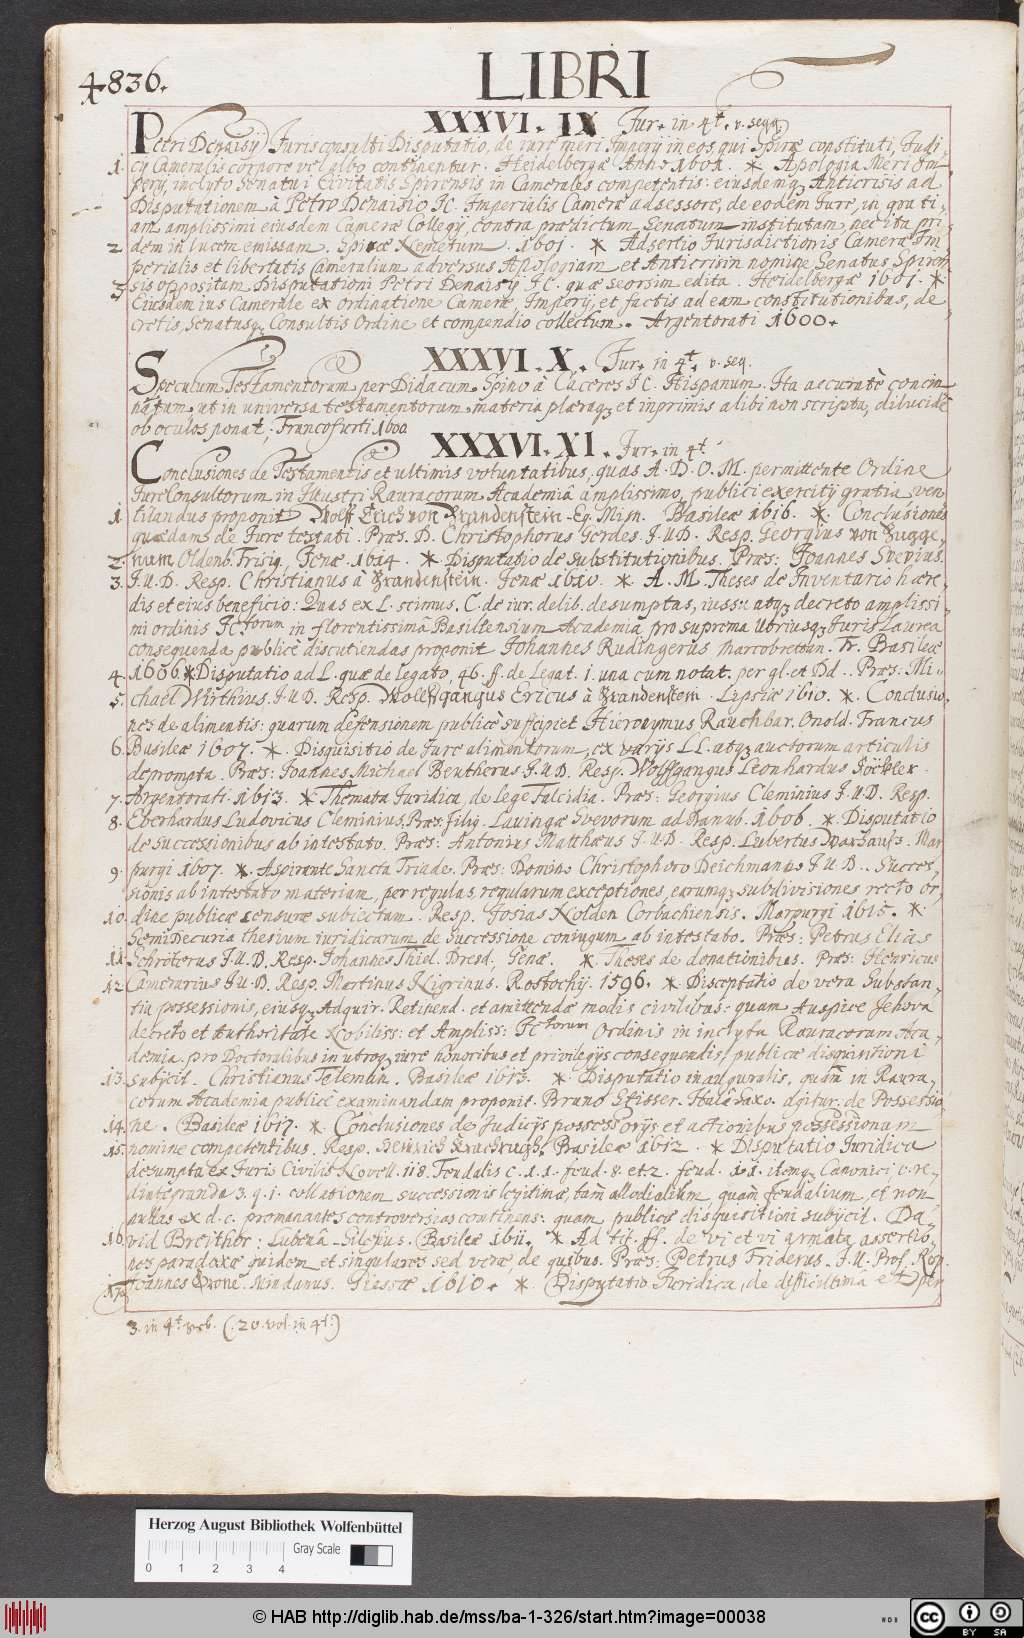 4836.
LIBRI
XXXVI. IX Jur. in 4t. v. seqq.
Petri Denaisij Jurisconsulti Disputatio, de iure meri Imperij in eos qui Spiræ constituti, Judi
1. cij Cameralis corpore vel albo continentur. Heidelbergæ Anno 1601. * Apologia Meri Im-
perij, inclyto Senatui Civitatis Spirensis in Camerales competentis: eiusdemq3 Anticrisis ad
Disputationem à Petro Denaisio JC. Imperialis Cameræ adsessore, de eodem Jure, in grati-
am amplissimi eiusdem Cameræ Collegij, contra prædictum Senatum institutam, nec ita pri-
2. dem in lucem emissam. Spiræ Nemetum. 1601. * Adsertio Jurisdictionis Cameræ Im
perialis et libertatis Cameralium adversus Apologiam et Anticrisin nomine Senatus Spiren
3. sis oppositam Disputationi Petri Denaisij JC. quæ seorsim edita. Heidelbergæ 1601. *
Eiusdem ius Camerale ex ordinatione Cameræ, Imperij, et factis ad eam constitutionibus, de
cretis, Senatusq3 Consultis Ordine et compendio collectum. Argentorati 1600.
XXXVI. X. Jur. in 4t. v. seq.
Speculum Testamentorum per Didacum Spino à Caceres JC. Hispanum. Ita accuratè concin
natum, ut in universa testamentorum materia plæraq3 et inprimis alibi non scripta, dilucidè
ob oculos ponat, Francofurti 1600
XXXVI. XI. Jur. in 4t
Conclusiones de Testamentis et ultimis voluntatibus, quas A. D. O. M. permittente Ordine
JureConsultorum in Illustri Rauracorum Academiâ amplissimo, publici exercitij gratia ven
1. tilandus proponit Wolff Erich von Brandenstein Eq. Misn. Basileæ 1616. * Conclusiones
quædams de Jure testati. Præs. D. Christophorus Gerdes J.U.D. Resp. Georgius von
2. Oldenb. Frisig, Jenæ. 1614. * Disputatio de substitutionibus. Præs: Joannes Suevius
3. J.U.D. Resp. Christianus à Brandenstein. Jenæ 1610. * A. M. Theses de Inventario hære-
dis et eius beneficio: Quas ex L. scimus. C. de iur. delib. desumptas, iussu atq3 decreto amplissi
mi ordinis JCtorum in florentissimâ Basiliensium Academiâ pro suprema Utriusq3 Juris Laurea
consequenda publicè discutiendas proponit Johannes Rudingerus Marcobretân. Fr. Basileæ
4. 1606. * Disputatio ad L. quæ de legato, 46. ff. de Legat. 1. una cum notat. per gl. et Dd.. Præs. Mi-
5. chael Wirthius J.U.D. Resp. Wolffgangus Ericus à Brandenstein. Lipsiæ 1610. * Conclusio
nes de alimentis: quarum defensionem publicè suscipiet Hieronymus Rauchbar. Onold. Francus
6. Basileæ 1607. * Disquisitio de Jure alimentorum, ex varijs LL. atq3 auctorum articulis
deprompta. Præs: Joannes Michael Beutherus J.U.D. Resp. Wolffgangus Leonhardus Jöckler.
7. Argentorati 1613. * Themata Juridica, de Lege Falcidia. Præs: Georgius Cleminius J.U.D. Resp.
8. Eberhardus Ludovicus Cleminius, Præs. filig. Lavingæ Svevorum ad Danub. 1606. * Disputatio
de successionibus ab intestato. Præs: Antonius Matthæus J.U.D. Resp. Lubertus Mar
9. purgi 1607. * Aspirante Sancta Triade. Præs: Domino Christophoro Deichmanno J.U.D.. Succes,
sionis ab intestato materiam, per regulas, regularum exceptiones, earumq3 subdivisiones recto or,
10. dine publicæ censuræ subiectam. Resp. Josias Nolden Corbachiensis. Marpurgi 1615. *
SemiDecuria thesium iuridicarum de successione coniugum ab intestato. Præs: Petrus Elias
11. Schröterus J.U.D. Resp. Johannes Thiel. Dresd, Jenæ. * Theses de donationibus. Præs: Henricus
12. Camerarius J.U.D. Resp. Martinus Nigrinus. Rostochij. 1596. * Disceptatio de vera Substan-
tia possessionis, eiusq3 Adquir. Retinend. et amittendæ modis civilibus: quam Auspice Jehova
decreto et Authoritate Nobiliss: et Ampliss: JCtorum Ordinis in inclyta Rauracorum Aca,
demia. pro Doctoralibus in utroq3 iure honoribus et privilegijs consequendis, publicæ disquisitioni
13. subijcit. Christianus Teleman. Basileæ 1613. * Disputatio inauguralis, quam in Raura,
corum Academia publicè examinandam proponit. Bruno Stisser. Halâ Saxo. agitur. de Possessio
14. ne. Basileæ 1617. * Conclusiones de Judicijs possessorijs et actionibus possessionum
15. nomine competentibus. Resp. Heinrich Basileæ 1612. * Disputatio Juridica
desumpta ex Juris Civilis Novell. 118. Feudalis c. 1. 1. feud. 8. et 2. feud. 11. itemq3 Canonici c. re-
dintegranda 3. q. 1. collationem successionis legitimæ, tam allodialium quam feudalium, et non
nullas ex d. c. promanantes controversias continens: quam publicæ disquisitioni subijcit. Da-
16. vid Breither: Lubenâ-Silesius. Basileæ 1611. * Ad tit. ff. de vi et vi armata assertio,
nes paradoxæ quidem et singulares sed veræ, de quibus. Præs. Petrus Friderus. J.U. Prof. Resp.
17. Joannes Mindanus. Giessæ 1610. * Disputatio Juridica, de difficillima et per
3. in 4t. (: 20. vol. in 4t:)
Herzog August Bibliothek Wolfenbüttel
Gray Scale
0 1 2 3 4
© HAB http://diglib.hab.de/mss/ba-1-326/start.htm?image=00038
WDB
cc BY SA